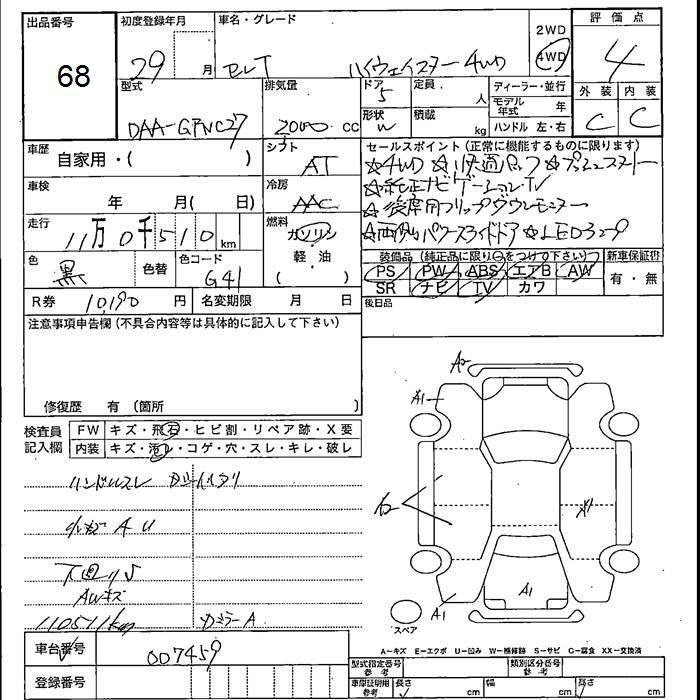 出品番号
68
初度登録年月
29 月
車名・グレード
セレナ ハイウェイスター 4WD
2WD
4WD
評価点
4
外装 内装
C C
型式
DAA-GFNC27
排気量
2000 cc
ドア
5
形状
W
定員
人
積載
kg
ディーラー・並行
モデル年式 年
ハンドル 左・右
車歴
自家用・( )
シフト
AT
車検
年 月( 日)
冷房
AAC
走行
11万0千510km
燃料
ガソリン
軽・油
( )
色
黒
色替
色コード
G41
R券 10,190 円
名変期限 月 日
セールスポイント(正常に機能するものに限ります)
☆4WD ☆快適パック ☆プッシュスタート
☆純正ナビゲーションTV
☆後席用フリップダウンモニター
☆両側パワースライドドア ☆LEDライト
装備品(純正品に限り○をつけて下さい) 新車保証書
PS PW ABS エアB AW
SR ナビ TV カワ
有・無
後日品
注意事項申告欄(不具合内容等は具体的に記入して下さい)
修復歴 有(箇所
検査員
記入欄
FW キズ・飛石・ヒビ割・リペア跡・X要
内装 キズ・汚レ・コゲ・穴・スレ・キレ・破レ
ハンドルスレ
A U
下回りS
AWキズ
110511km
ミラーA
A2
A1
A2
A1
A1
スペア
A-キズ E-エクボ U-凹み W-補修跡 S-サビ C-腐食 XX-交換済
車台番号 007459
登録番号
型式指定番号 参考
類別区分番号 参考
車庫証明用 参考 長さ cm 幅 cm 高さ cm